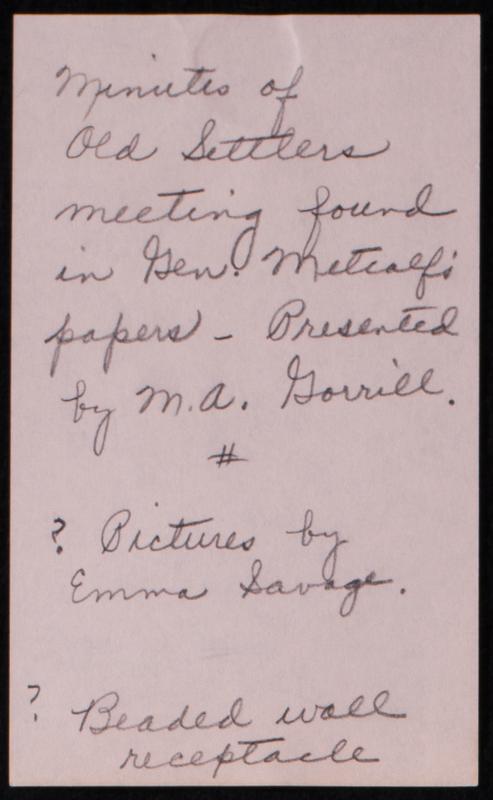 Minutes of
Old Settlers
meeting found
in Gen. Metcalf's
papers - Presented
by M.A. Gorrill.
#
? Pictures by
Emma Savage.
? Beaded wall
receptacle